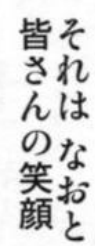 それは なおと
皆さんの笑顔